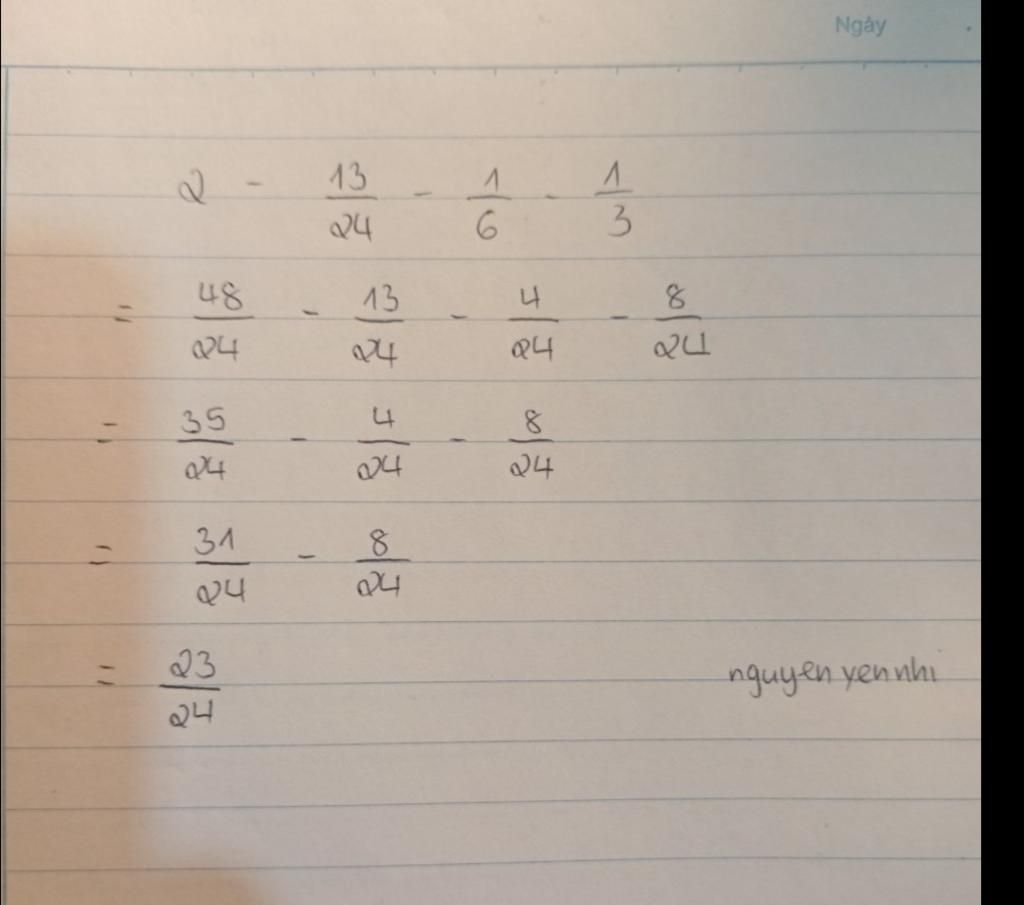 Ngày
2 - 13/24 - 1/6 - 1/3
= 48/24 - 13/24 - 4/24 - 8/24
= 35/24 - 4/24 - 8/24
= 31/24 - 8/24
= 23/24
nguyen yen nhi